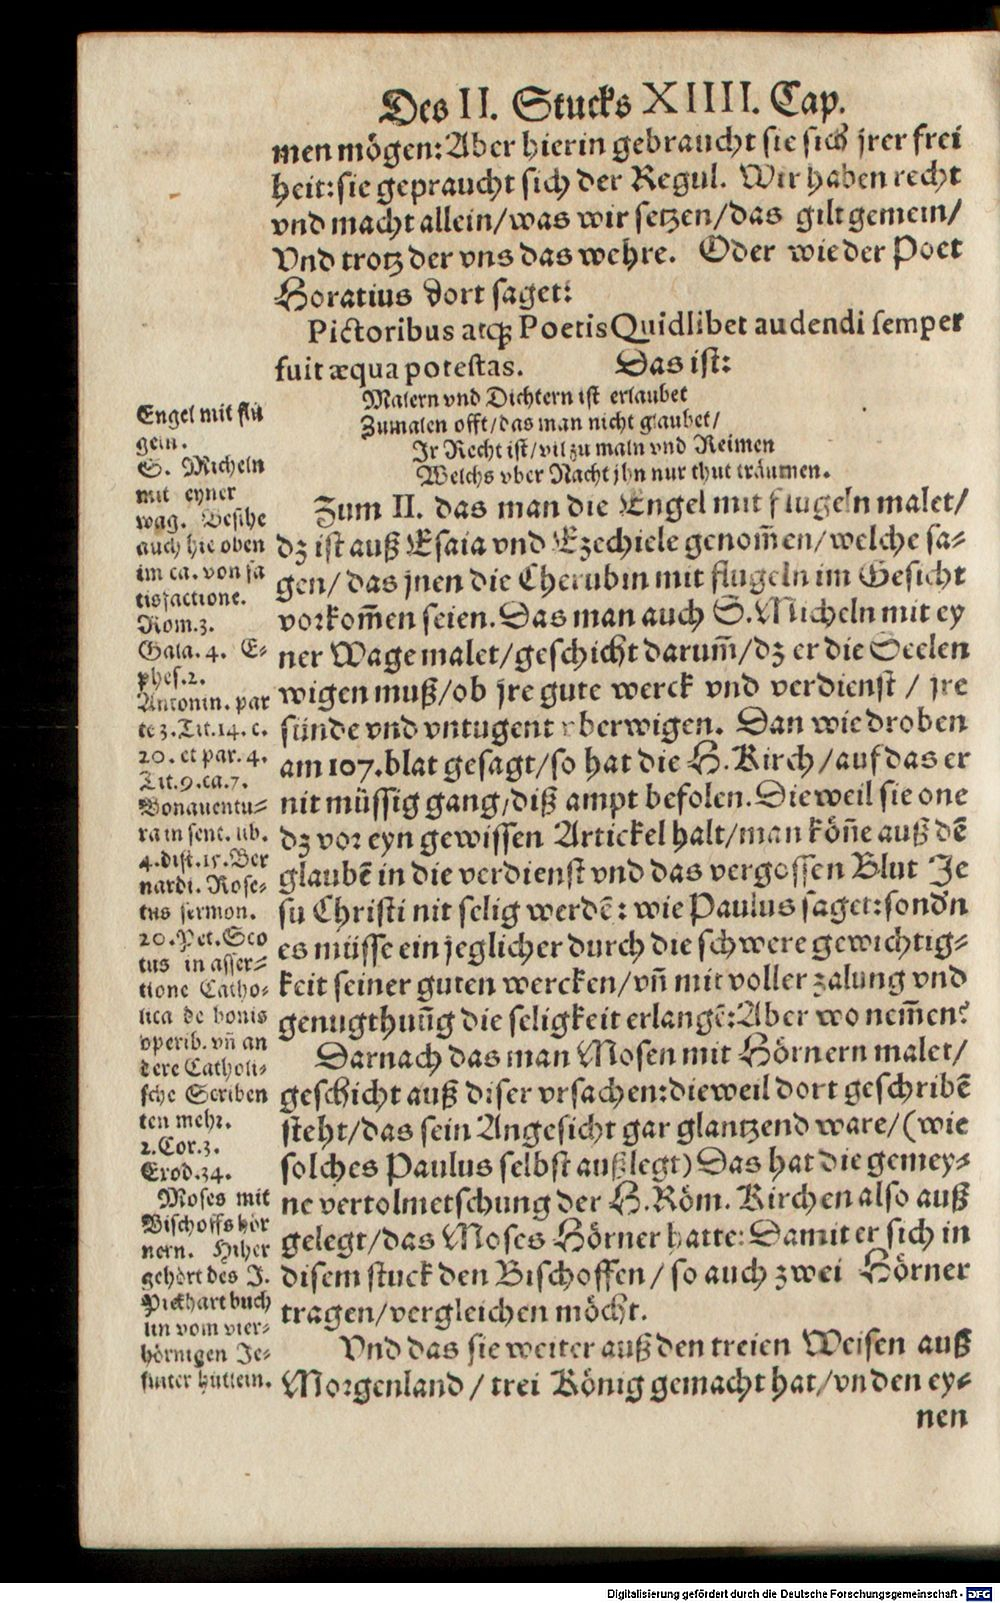 Des II. Stucks XIIII. Cap.
men mögen: Aber hierin gebraucht sie sich jrer frei
heit: sie gepraucht sich der Regul. Wir haben recht
vnd macht allein/was wir setzen/das gilt gemein/
Vnd trotz der vns das wehre. Oder wie der Poet
Horatius dort saget:
Pictoribus atq; Poetis Quidlibet audendi semper
fuit æqua potestas. Das ist:
Malern vnd Dichtern ist erlaubet
Zumalen offt/das man nicht glaubet/
Jr Recht ist/vil zu maln vnd Reimen
Welchs vber Nacht jhn nur thut träumen.
Zum II. das man die Engel mit flugeln malet/
dz ist auß Esaia vnd Ezechiele genom̃en/welche sa-
gen/das jnen die Cherubin mit flugeln im Gesicht
vorkom̃en seien. Das man auch S. Micheln mit ey
ner Wage malet/geschicht darum̃/dz er die Seelen
wigen muß/ob jre gute werck vnd verdienst / jre
sünde vnd vntugent vberwigen. Dan wie droben
am 107. blat gesagt/so hat die H. Kirch/auf das er
nit müssig gang/diß ampt befolen. Dieweil sie one
dz vor eyn gewissen Artickel halt/man kön̄e auß dē
glaubē in die verdienst vnd das vergossen Blut Je
su Christi nit selig werdē: wie Paulus saget: sondn
es müsse ein jeglicher durch die schwere gewichtig-
keit seiner guten wercken/vn̄ mit voller zalung vnd
genugthuūg die seligkeit erlangē: Aber wo nem̃ens?
Darnach das man Mosen mit Hörnern malet/
geschicht auß diser vrsachen: dieweil dort geschribē
steht/das sein Angesicht gar glantzend ware/(wie
solches Paulus selbst außlegt) Das hat die gemey-
ne vertolmetschung der H. Röm. Kirchen also auß
gelegt/das Moses Hörner hatte: Damit er sich in
disem stuck den Bischoffen / so auch zwei Hörner
tragen/vergleichen möcht.
Vnd das sie weiter auß den treien Weisen auß
Morgenland / trei König gemacht hat/vn den ey-
nen
Engel mit flü
geln.
S. Micheln
mit eyner
wag. Besihe
auch hie oben
im ca. von sa
tisfactione.
Rom.3.
Gala. 4. E-
phes.2.
Antonin. par
te 3. Tit.14. c.
20. et par. 4.
Tit.9.ca.7.
Bonauentu-
ra in sent. lib.
4. dist.15. Ber
nardi. Rose-
tus sermon.
20. Pet. Sco
tus in asser-
tione Catho-
lica de bonis
operib. vn̄ an
dere Catholi-
sche Scriben
ten mehr.
2. Cor.3.
Exod.34.
Moses mit
Bischoffs hör
nern. Hiher
gehört des J.
Pickhart buch
lin vom vier-
hörnigen Je-
suiter hütlein.
Digitalisierung gefördert durch die Deutsche Forschungsgemeinschaft - DFG